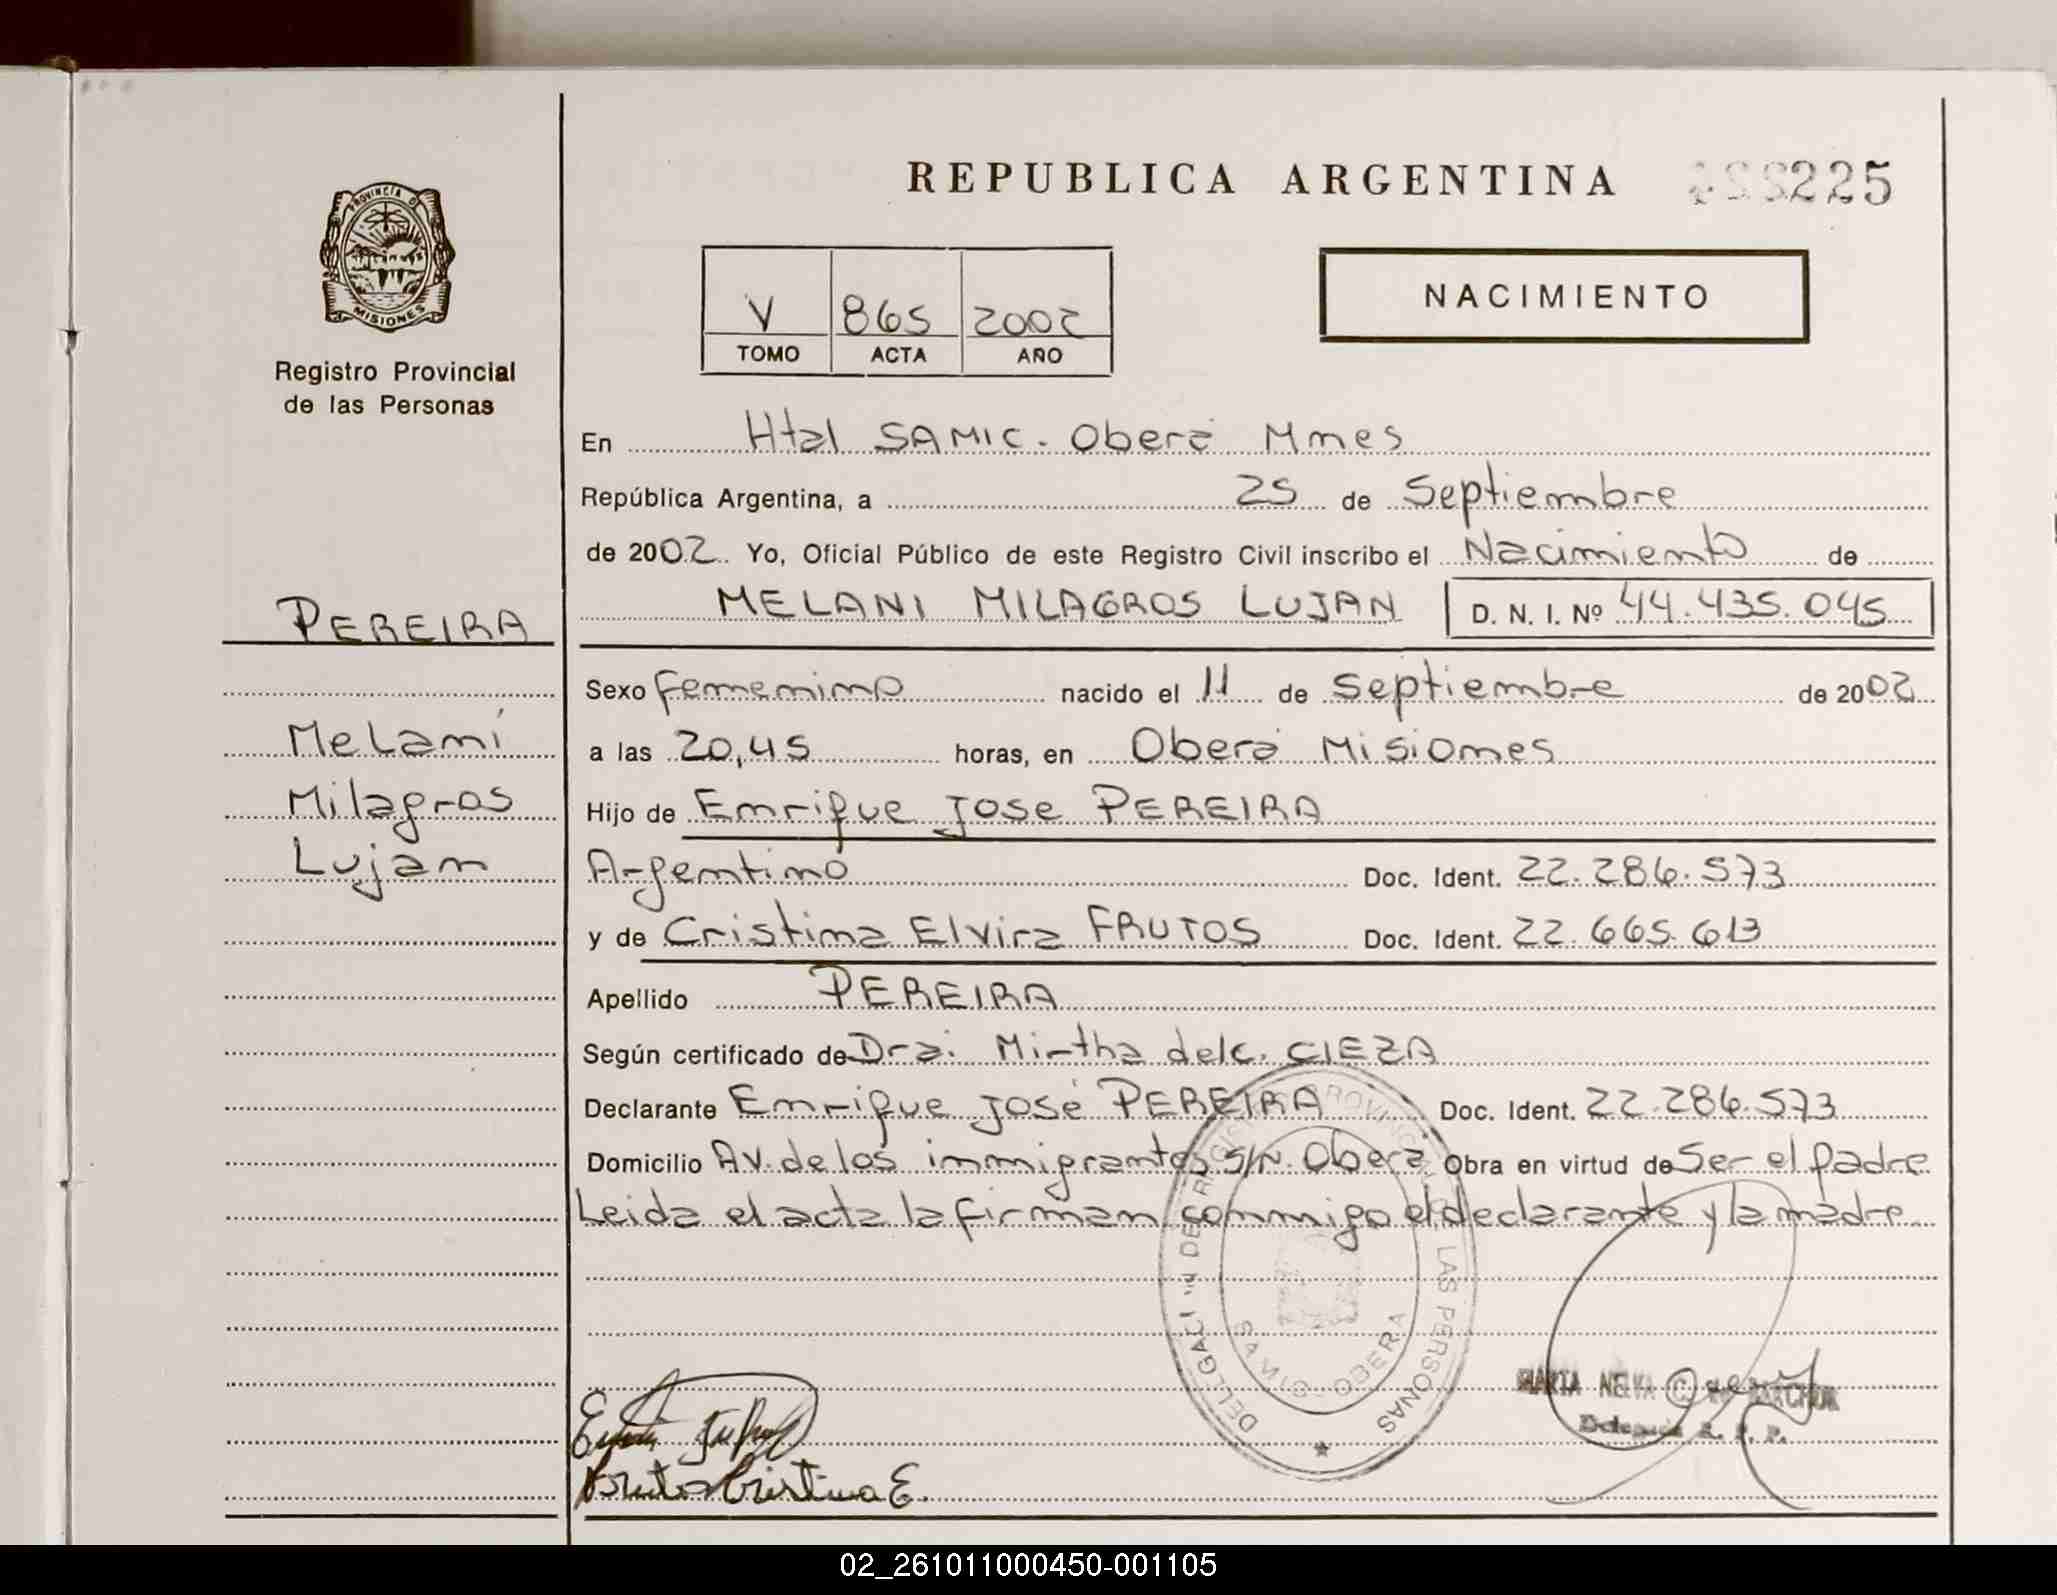 REPUBLICA ARGENTINA 225
PROVINCIA DE
MISIONES
Registro Provincial
de las Personas
NACIMIENTO
V 865 2002
TOMO ACTA AÑO
En Htal SAMIC. Oberá Mnes
República Argentina, a 25 de Septiembre
de 2002. Yo, Oficial Público de este Registro Civil inscribo el Nacimiento de
MELANI MILAGROS LUJAN D. N. I. Nº 44.435.045
PEREIRA
Melaní
Milagros
Lujan
Sexo femenino nacido el 11 de Septiembre de 2002
a las 20,45 horas, en Oberá Misiones
Hijo de Enrique Jose PEREIRA
Argentino Doc. Ident. 22.286.573
y de Cristina Elvira FRUTOS Doc. Ident. 22.665.613
Apellido PEREIRA
Según certificado de Dra. Mirtha del c. CIEZA
Declarante Enrique José PEREIRA Doc. Ident. 22.286.573
Domicilio Av. de los inmigrantes s/n. Oberá Obra en virtud de Ser el padre
Leida el acta la firman conmigo el declarante y la madre
DELEGACION DEL REGISTRO PROVINCIAL DE LAS PERSONAS
SAMIC - OBERA
MARTA NELVA
Delegada R. P. P.
Frutos Cristina E.
02_261011000450-001105